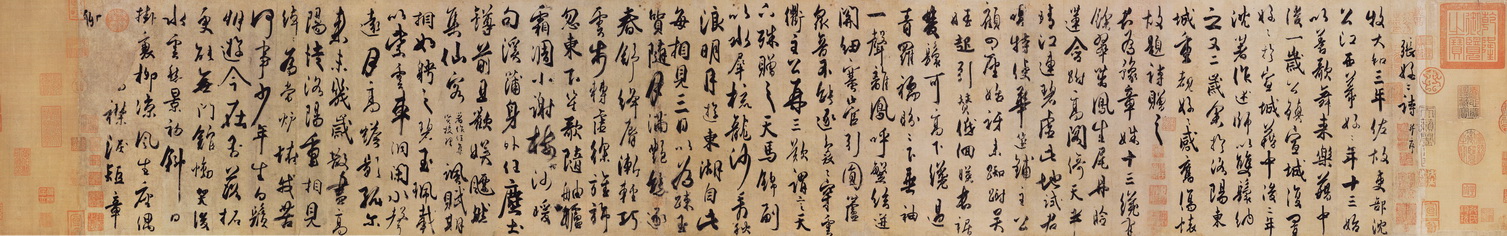 張好好詩 并序
牧大和三年佐故吏部沈
公江西幕好好年十三始
以善歌舞來樂籍中
後一歲公鎮宣城復置
好好於宣城籍中後二年
沈著作述師以雙鬟納
之又二歲余於洛陽東
城重覩好好感舊傷懷
故題詩贈之
君為豫章姝十三纔有
餘翠茁鳳生尾丹臉
蓮含跗高閣倚天半
晴江連碧虛此地試君
唱特使華筵鋪主公
顧四座始訝來踟蹰吳
娃起引贊低佪暎長裾
雙鬟可高下纔過
青羅襦盼盼下垂袖
一聲離鳳呼繁絃迸
關紐塞管引圓蘆
衆音不能逐裊裊穿雲
衢主公再三歎謂言天
下殊贈之天馬錦副
以水犀梳龍沙看秋
浪明月遊東湖自此
每相見三日以為疎玉
質隨月滿艷態逐
春舒絳脣漸輕巧
雲步轉虛徐旌旆
忽東下笙歌隨舳艫
霜凋小謝樹沙暖
句溪蒲身外任塵土
罇前且歡娛飄然
集仙客 著作任集賢校理 諷賦期
相如聘之碧玉珮載
以紫雲車洞閉水聲
遠月高蟾影孤爾
來未幾歲散盡高
陽徒洛陽重相見
綽綽為當壚怪我苦
何事少年生白鬚
朋遊今在否落拓
更能無門館慟哭後
水雲秋景初斜日
掛衰柳涼風生座隅
襟淚短章
聊